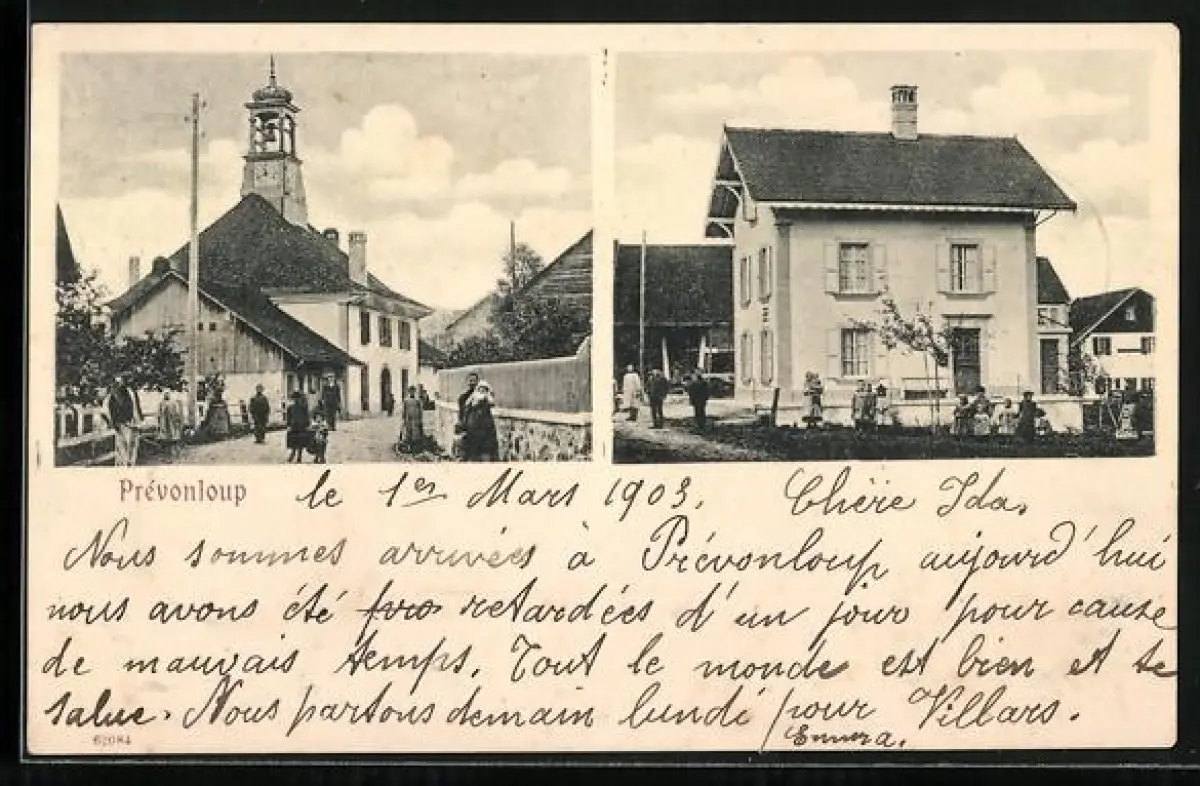 Prévonloup le 1er Mars 1903. Chère Ida,
Nous sommes arrivées à Prévonloup aujourd'hui
nous avons été retardées d'un jour pour cause
de mauvais temps. Tout le monde est bien et te
salue. Nous partons demain lundi pour Villars.
Emma.
62084